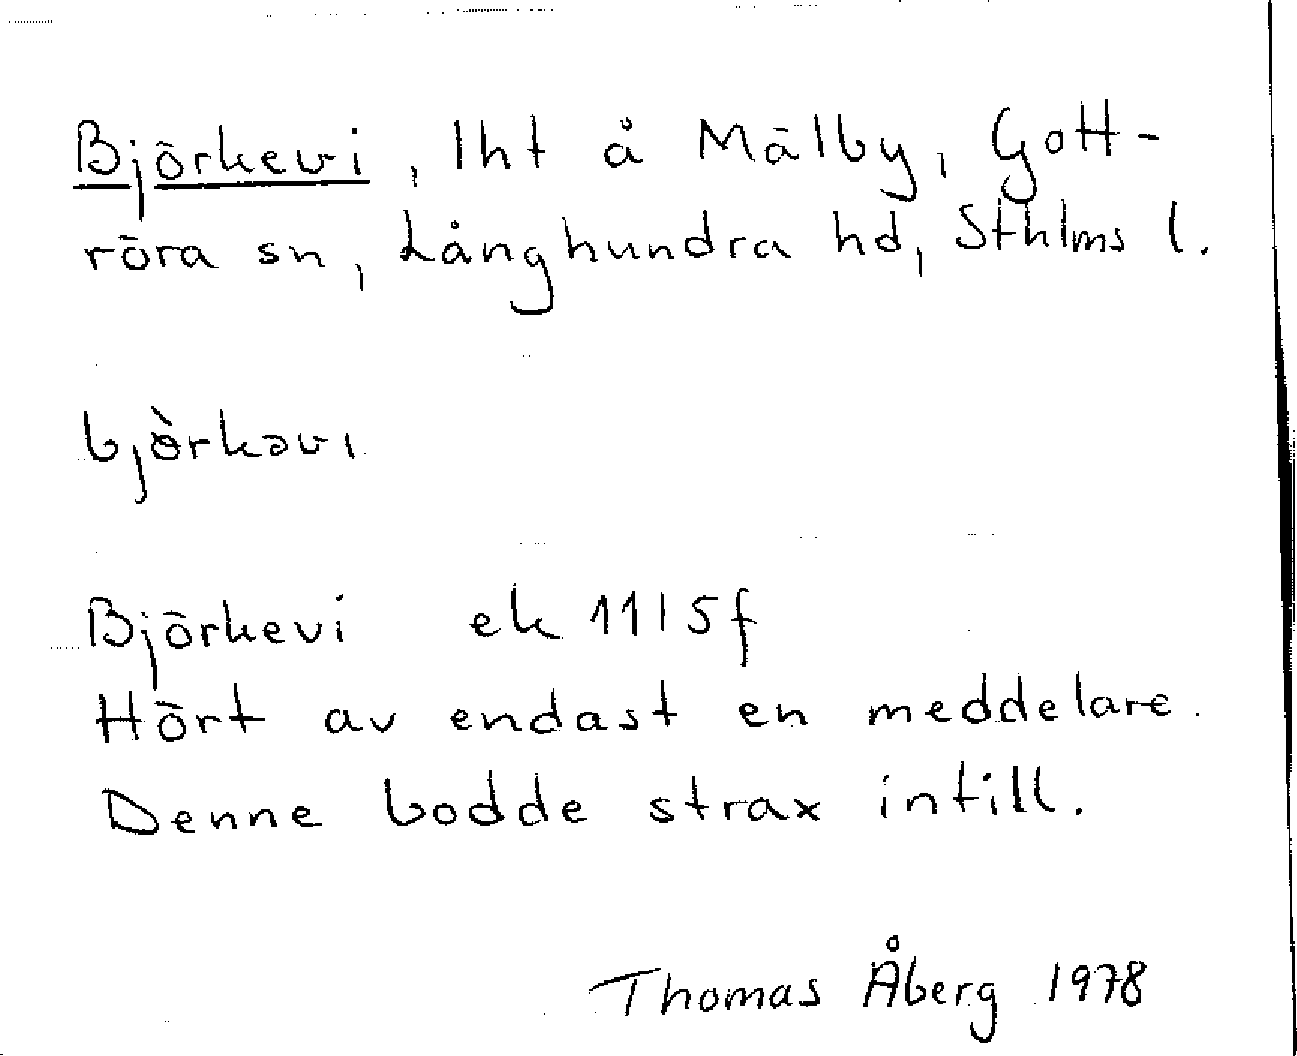 Björkevi, lht å Mälby, Gott-
röra sn, Långhundra hd, Sthlms l.
bjö̀rkəvı
Björkevi ek 11I 5f
Hört av endast en meddelare.
Denne bodde strax intill.
Thomas Åberg 1978